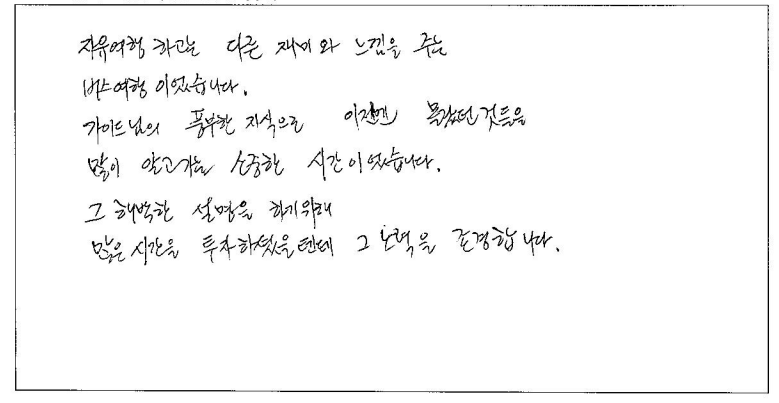 자유여행 하고는 다른 재미와 느낌을 주는
버스여행이었습니다.
가이드님의 풍부한 지식으로 이전엔 몰랐던 것들을
많이 알고가는 소중한 시간이었습니다.
그 해박한 설명을 하기위해
많은 시간을 투자하셨을텐데 그 노력을 존경합니다.